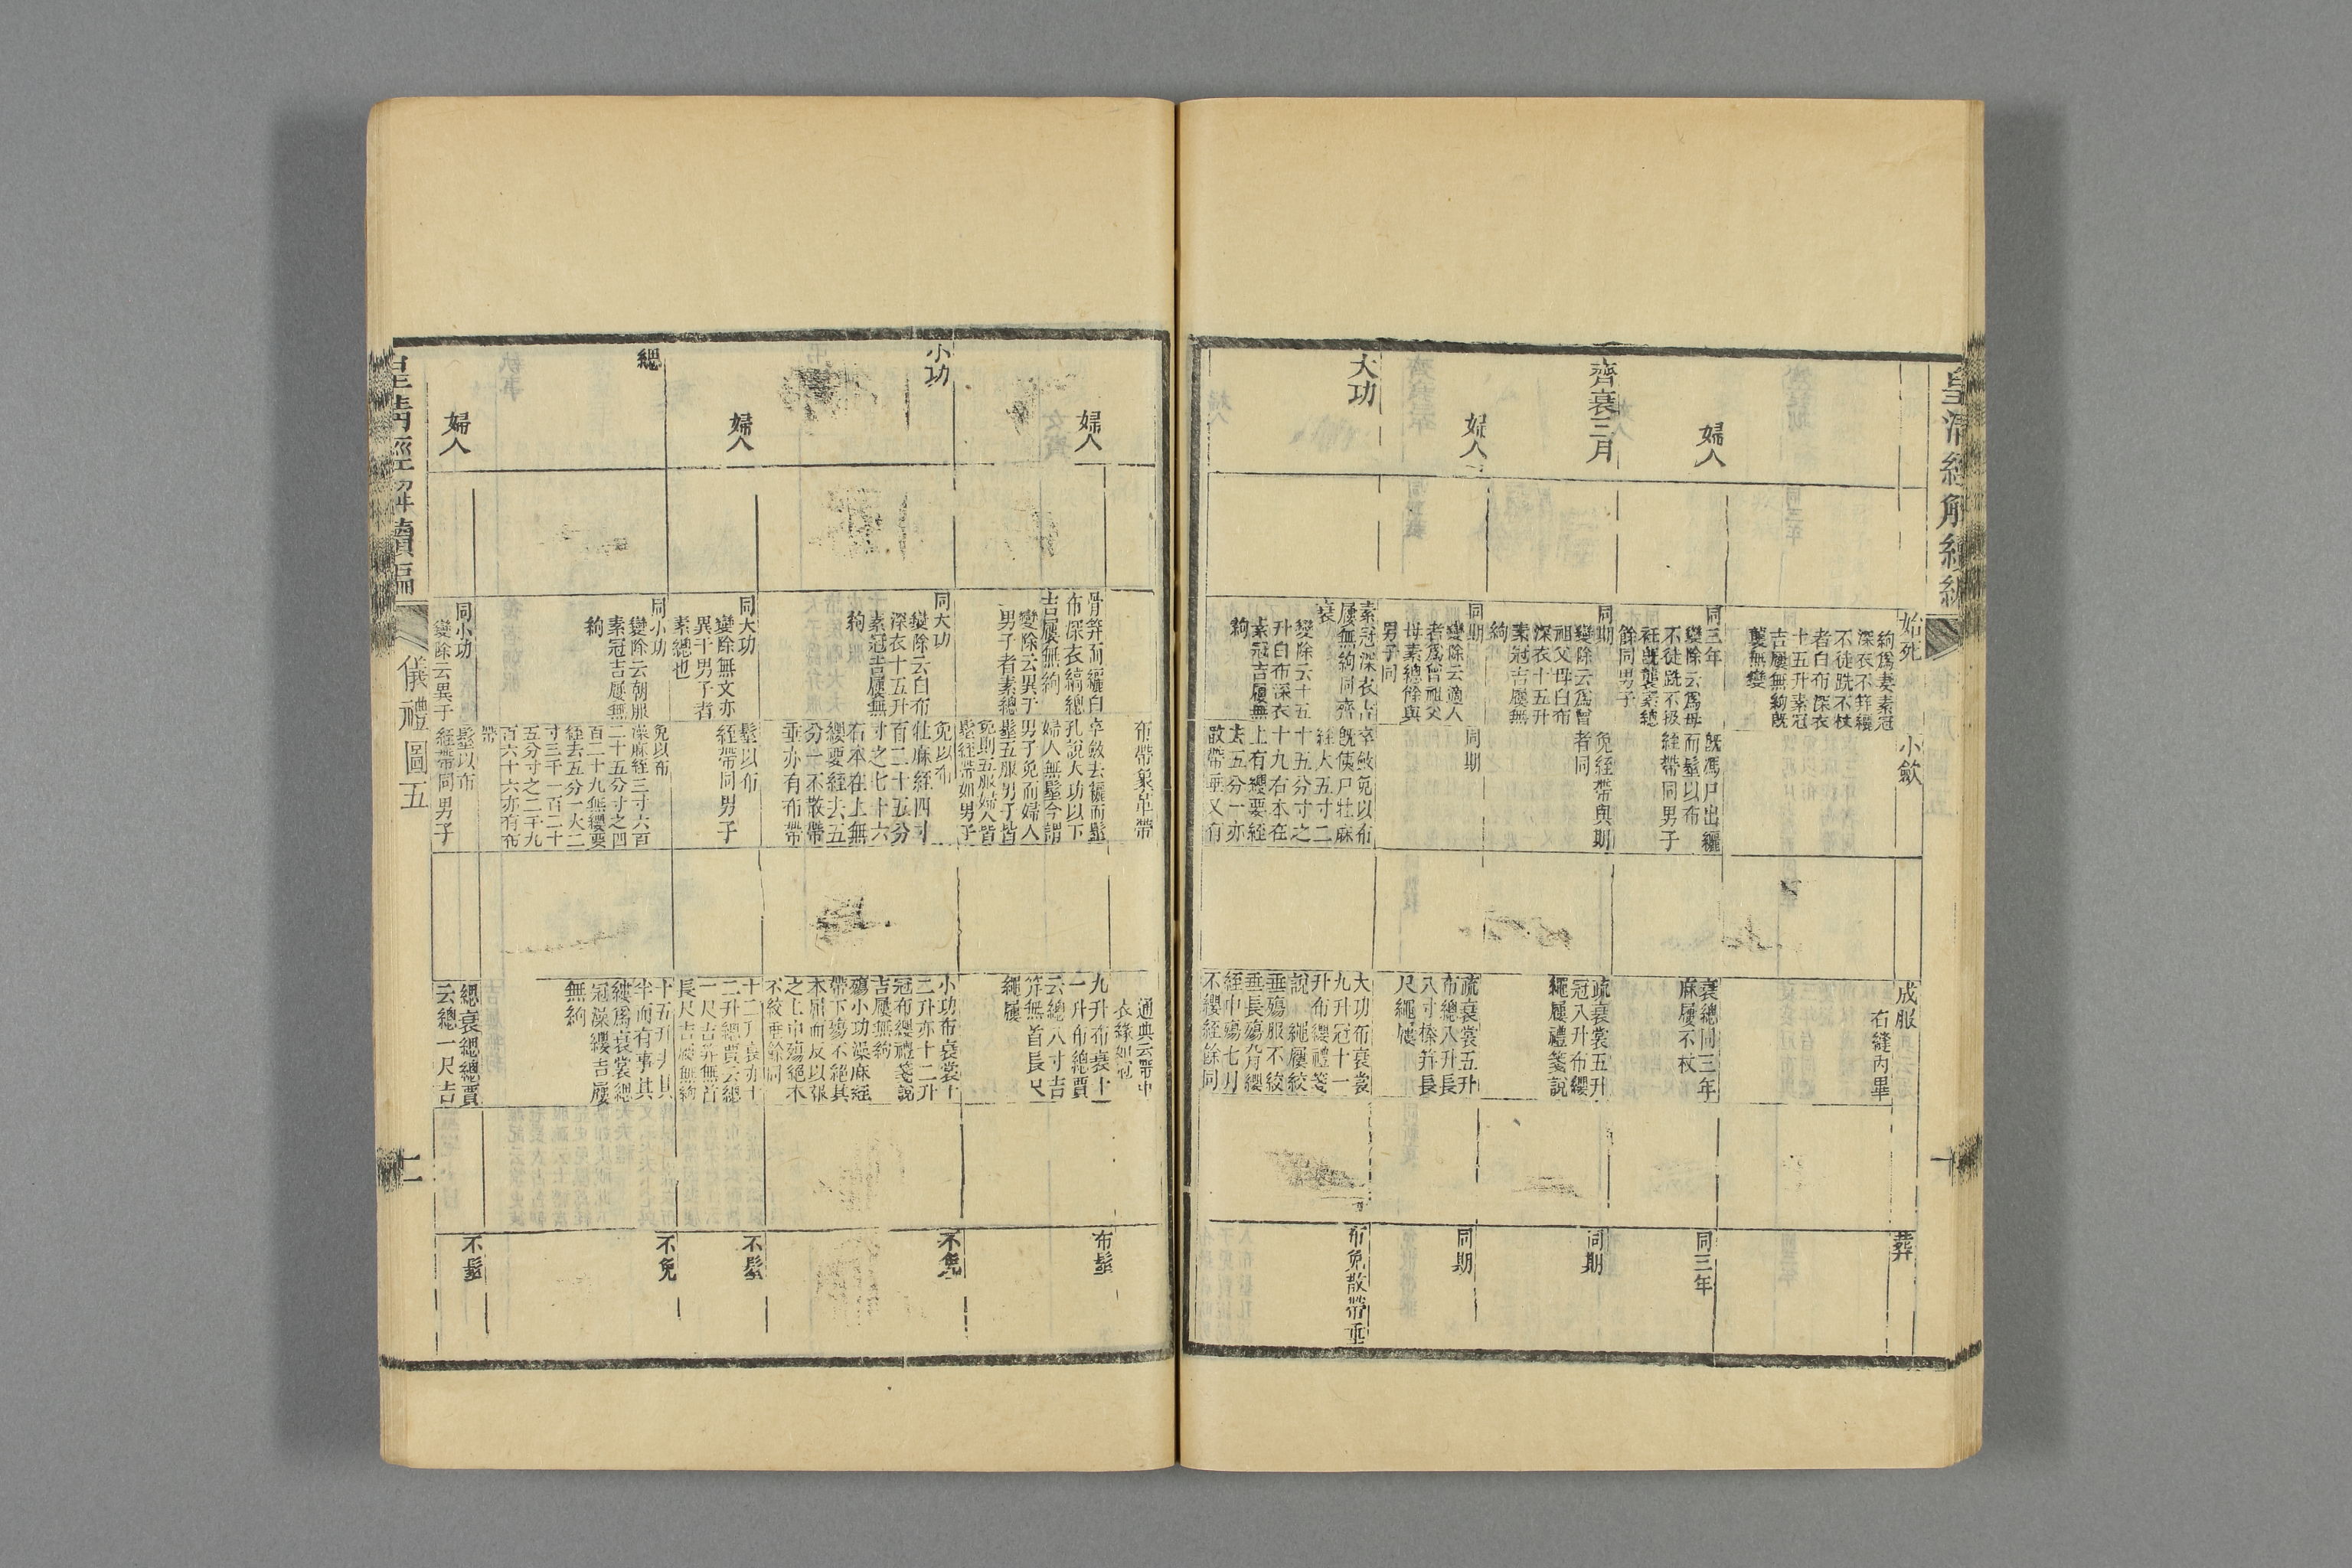 始死
小歛
成服
葬
絇爲妻素冠
深衣不笄纓
不徒跣不杖
者白布深衣
十五升素冠
吉屨無絇旣
襲無變
右縫丙畢
婦人
同三年
變除云爲母
不徒跣不扱
衽旣襲素總
餘同男子
旣馮尸出纚
而髽以布
絰帶同男子
衰總同三年
麻屨不杖
同三年
齊衰三月
同期
變除云爲曾
祖父母白布
深衣十五升
素冠吉屨無
絇
免絰帶與期
者同
疏衰裳五升
冠八升布纓
繩屨禮箋說
同期
婦人
同期
變除云適人
者爲曾祖父
母素總餘與
男子同
同期
疏衰裳五升
布總八升長
八寸榛笄長
尺繩屨
同期
大功
素冠深衣吉
屨無絇同齊
衰
變除云十五
升白布深衣
素冠吉屨無
絇
卒斂免以布
旣侇尸牡麻
絰大五寸二
十五分寸之
十九右本在
上有纓要絰
去五分一亦
散帶垂又有
大功布衰裳
九升冠十一
升布纓禮箋
說 繩屨絞
垂殤服不絞
垂長殤九月纓
絰中殤七月
不纓絰餘同
布免散帶垂
布帶象革帶
通典云帶中
衣緣如冠
婦人
骨笄而纚白
布深衣縞總
吉屨無絇
變除云異于
男子者素總
卒斂去纚而髽
孔說大功以下
婦人無髽今謂
男子免而婦人
髽五服男子皆
免則五服婦人皆
髽絰帶如男子
九升布衰十
一升布總賈
云總八寸吉
笄無首長尺
繩屨
布髽
小功
同大功
變除云白布
深衣十五升
素冠吉屨無
絇
免以布
牡麻絰四寸
百二十五分
寸之七十六
右本在上無
纓要絰去五
分一不散帶
垂亦有布帶
小功布衰裳十
二升亦十二升
冠布纓禮箋說
吉屨無絇
殤小功澡麻絰
帶下殤不絕其
本屈而反以報
之上中殤絕本
不絞垂餘同
不免
婦人
同大功
變除無文亦
異于男子者
素總也
髽以布
絰帶同男子
十二升衰亦十
二升總賈云總
一尺吉笄無首
長尺吉屨無絇
不髽
緦
同小功
變除云朝服
素冠吉屨無
絇
免以布
澡麻絰三寸六百
二十五分寸之四
百二十九無纓要
絰去五分一大二
寸三千一百二十
五分寸之二千九
百六十六亦有布
帶
十五升去其
半而有事其
縷爲衰裳緦
冠澡纓吉屨
無絇
不免
婦人
同小功
變除云異于
髽以布
絰帶同男子
緦衰緦總賈
云總一尺吉
不髽
皇清經解續編
儀禮圖五
十一